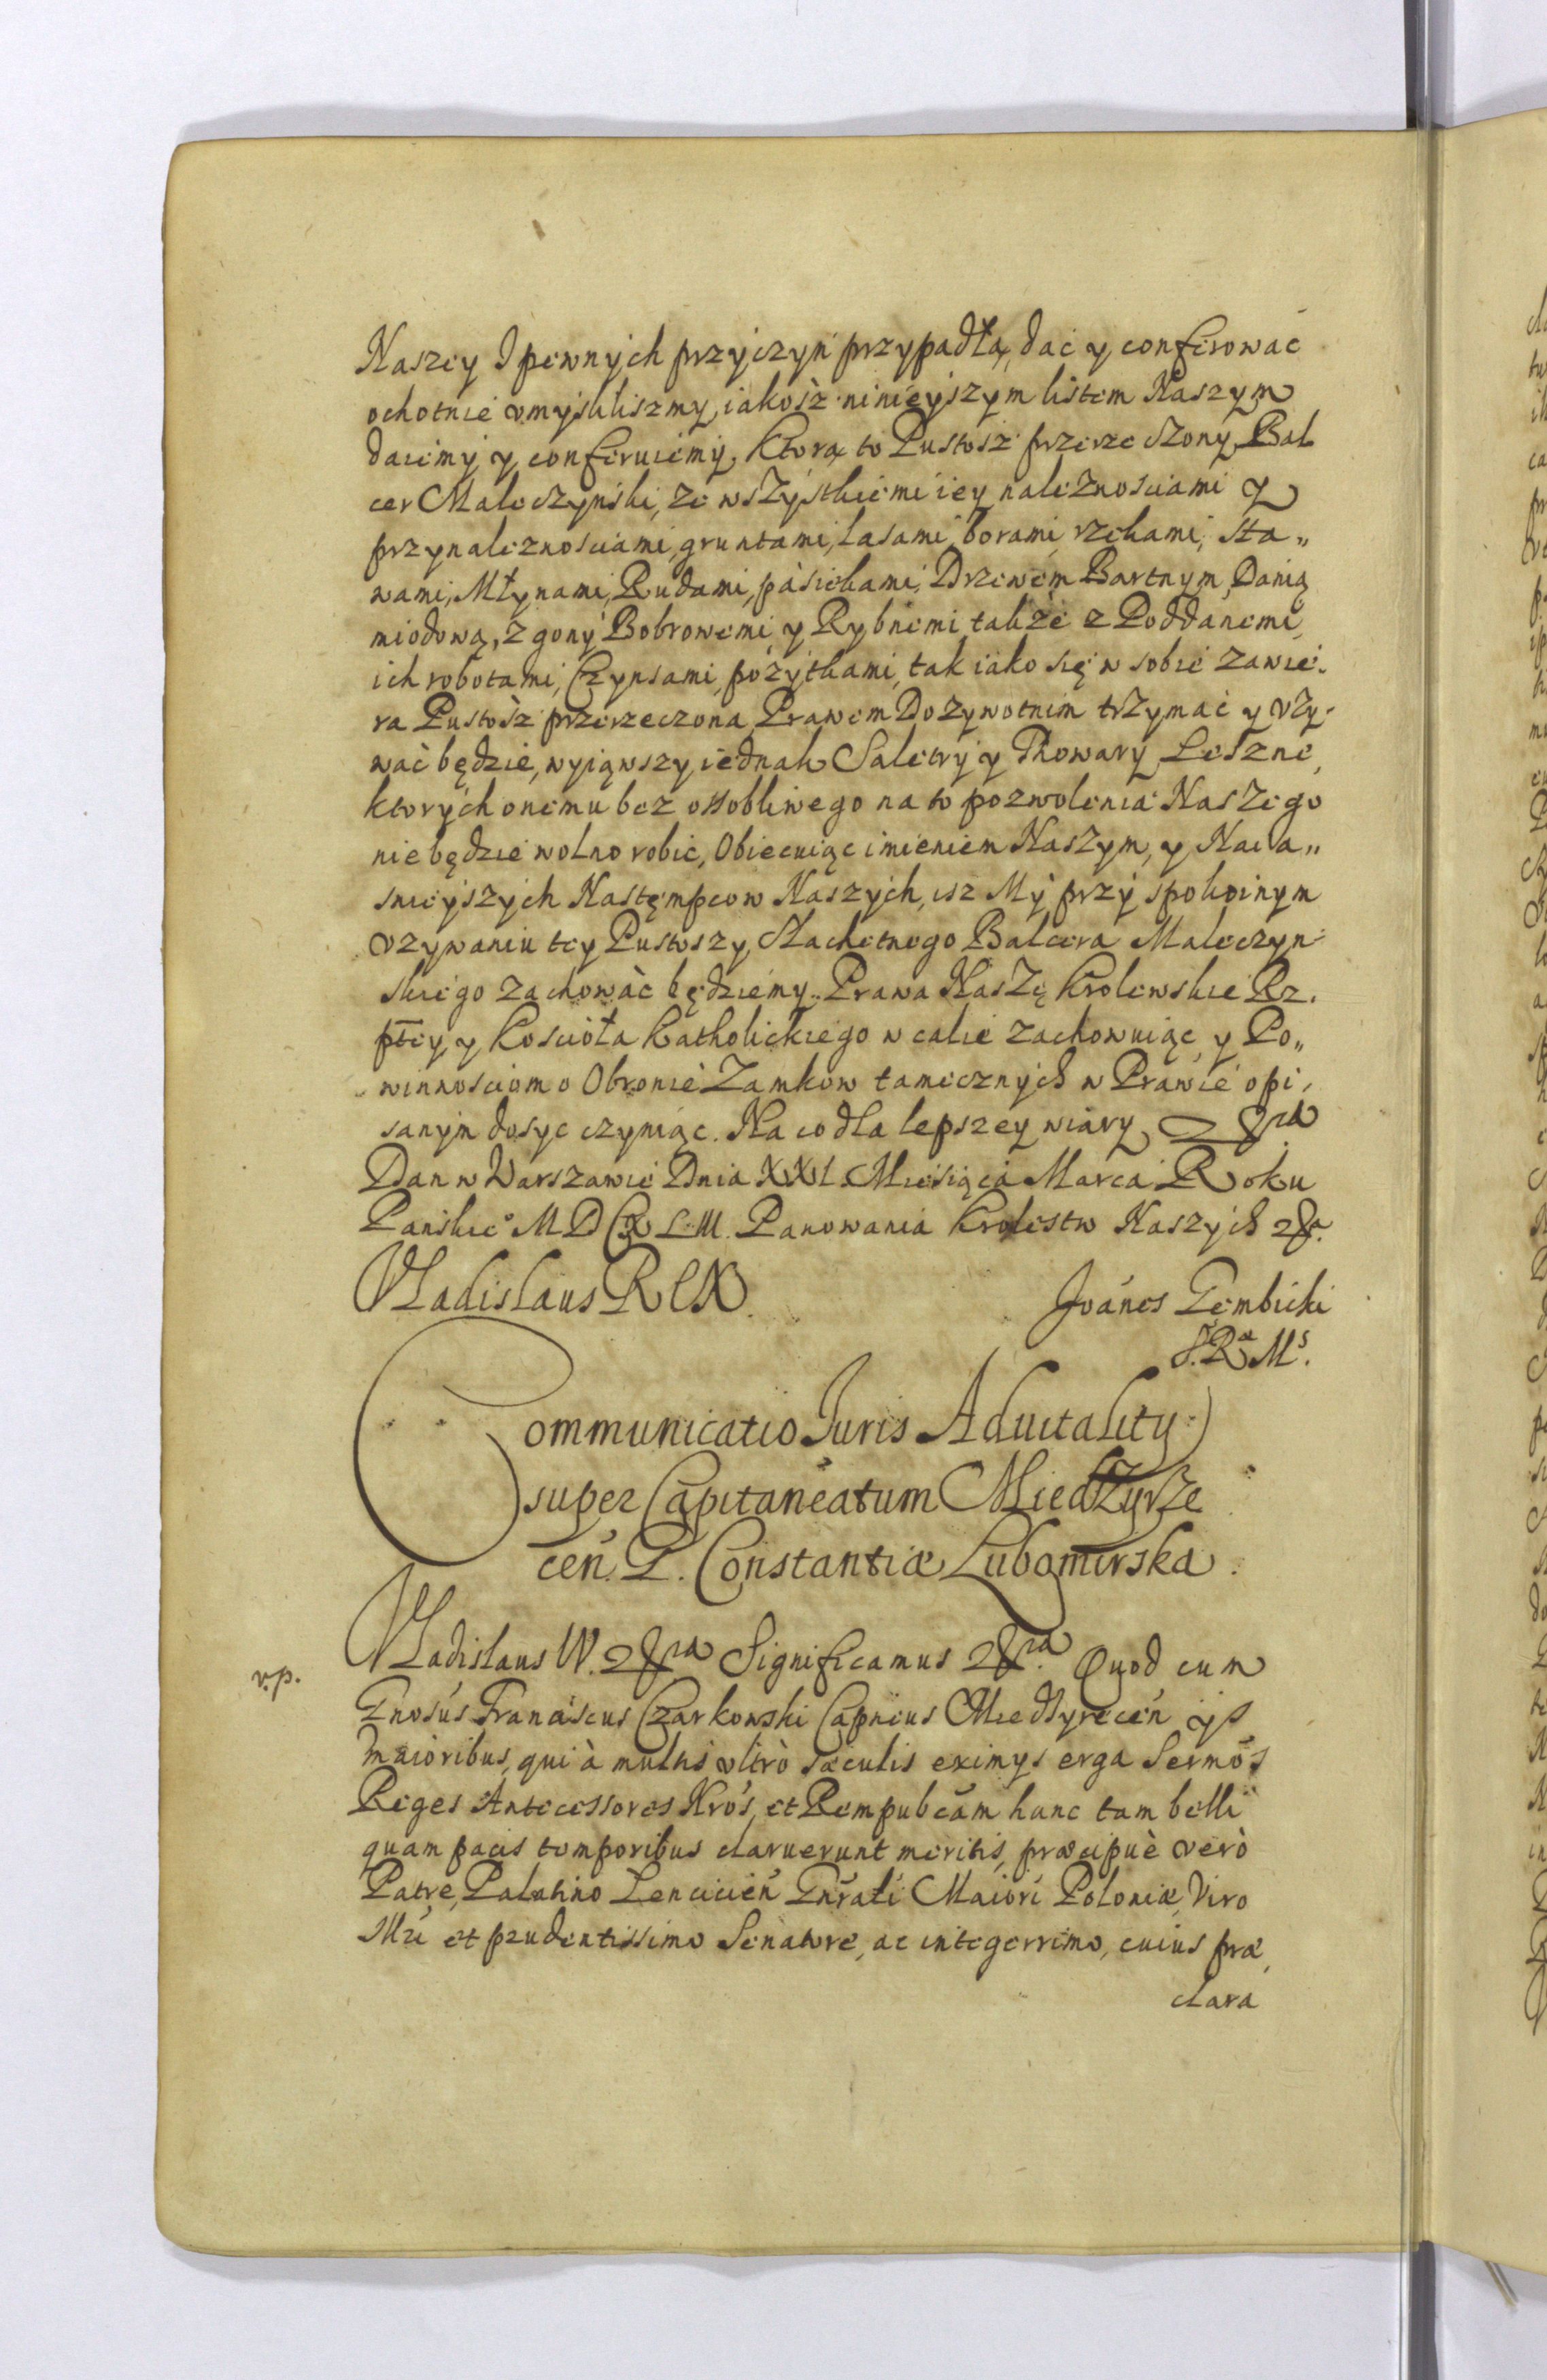 Naszey z pewnych przyczyn przypadłą, dac y conferowac
ochotnie vmyśliliszmy, iakosz ninieyszym listem Naszym
daiemy y conferuiemy. Ktorą to Pustosz przerzeczony Bal
cer Maleczynski, ze wszystkiemi iey należnosciami y
przynaleznosciami, gruntami, Lasami, borami, rzekami, sta„
wami, Młynami, Rudami, pasiekami, Drzewem Bartnym, Danią
miodową, z gony Bobrowemi, y Rybnemi, takze z Poddanemi,
ich robotami, Czynsami, pożytkami, tak iako się w sobie zawie-
ra Pustosz przerzeczona, Prawem Dozywotnim trzymać y vży-
wać będzie, wyiąwszy iednak Saletry y Thowary Leszne,
ktorych onemu bez ossobliwego na to pozwolenia Naszego
nie będzie wolno robic, Obiecuiąc imieniem Naszym, y Naia„
snieyszych Następcow Naszych, isz My przy spokoinym
vzywaniu tey Pustoszy, Slachetnego Balcera Maleczyn-
skiego zachowàc będziemy. Prawa Naszę Krolewskie Rz.
ptey y Koscioła Katholickiego w calie zachowuiąc, y Po„
winnosciom o Obronie Zamkow tamecznych w Prawie opi,
sanym dosyc czyniąc. Na co dla lepszey wiary &ra
Dan w Warszawie Dnia XXI. Miesiąca Marca Roku
Panskieº MDCXLIII. Panowania Krolestw Naszych &c.
Vladislaus REX. Joānes Gembicki
S. Ræ Mˢ.
Communicatio Juris Aduitality
super Capitaneatum Miedzyrze
cen. G. Constantiæ Lubomirska.
v.p.
Vladislaus IV. &ra Significamus &ra. Quod cum
Gnosus Franciscus Czarkowski Capneus Miedzyrecen ijs
maioribus, qui à multis vltrò sæculis eximys erga Sermos
Reges Antecessores Nros, et Rempubcam hanc tam belli
quam pacis temporibus claruerunt meritis, præcipuè verò
Patre, Palatino Lencicien Gnrali Maiori Poloniæ, Viro
Illri et prudentissimo Senatore, ac integerrimo, cuius præ,
clara